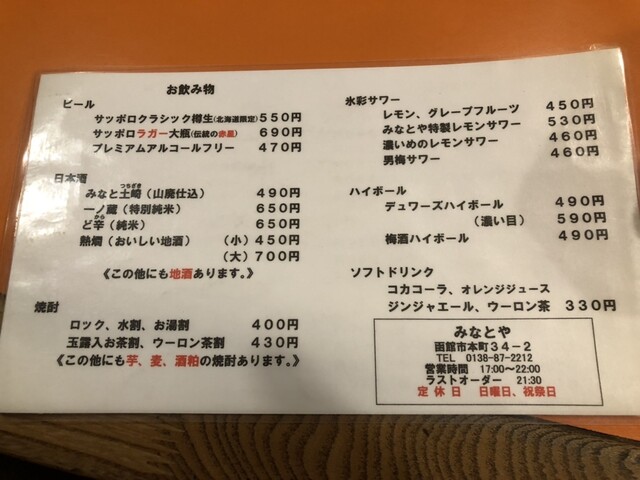 お飲み物
ビール
サッポロクラシック樽生(北海道限定) 550円
サッポロラガー大瓶(伝統の赤星) 690円
プレミアムアルコールフリー 470円
日本酒
みなと土崎(山廃仕込) 490円
つちざき
一ノ蔵(特別純米) 650円
ど辛(純米) 650円
から
熱燗(おいしい地酒) (小)450円
(大)700円
《この他にも地酒あります。》
焼酎
ロック、水割、お湯割 400円
玉露入お茶割、ウーロン茶割 430円
《この他にも芋、麦、酒粕の焼酎あります。》
氷彩サワー
レモン、グレープフルーツ 450円
みなとや特製レモンサワー 530円
濃いめのレモンサワー 460円
男梅サワー 460円
ハイボール
デュワーズハイボール 490円
(濃い目) 590円
梅酒ハイボール 490円
ソフトドリンク
コカコーラ、オレンジジュース
ジンジャエール、ウーロン茶 330円
みなとや
函館市本町34-2
TEL 0138-87-2212
営業時間 17:00~22:00
ラストオーダー 21:30
定休日 日曜日、祝祭日